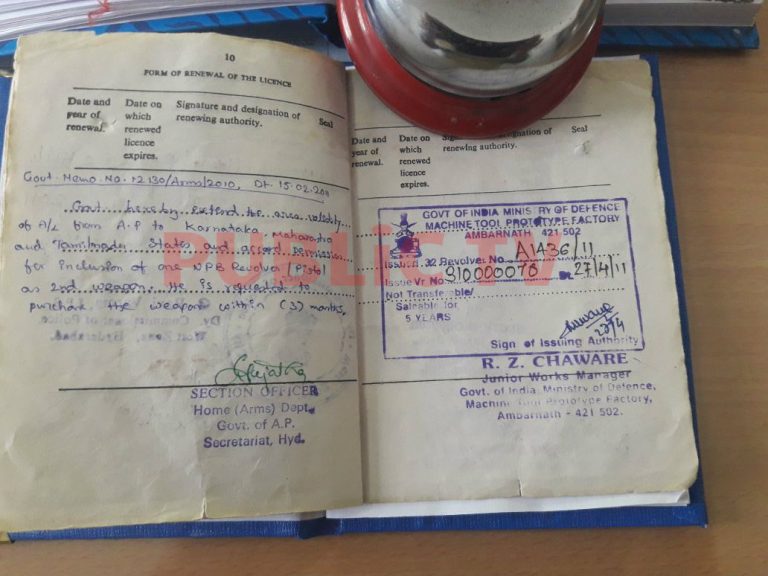 10
FORM OF RENEWAL OF THE LICENCE
Date and year of renewal.
Date on which renewed licence expires.
Signature and designation of renewing authority.
Seal
Govt. Memo. No. 12130/Arms/2010, Dt. 15.02.2011
Govt. hereby extend the area validity
of A/L from A.P to Karnataka, Maharastra
and Tamilnadu States and accord permission
for inclusion of one NPB Revolver/Pistol
as 2nd weapon. He is requested to
purchase the weapon within (3) months.
SECTION OFFICER
Home (Arms) Dept.
Govt. of A.P.
Secretariat, Hyd.
Date and year of renewal.
Date on which renewed licence expires.
designation of renewing authority.
Seal
GOVT OF INDIA MINISTRY OF DEFENCE
MACHINE TOOL PROTOTYPE FACTORY
AMBARNATH 421 502
Issued .32 Revolver No. A1436/11
Issue Vr No. 310000076 Dt. 27/4/11
Not Transferable/
Saleable for
5 YEARS
Sign of Issuing Authority
R. Z. CHAWARE
Junior Works Manager
Govt. of India, Ministry of Defence,
Machine Tool Prototype Factory,
Ambarnath - 421 502.
PUBLiC TV